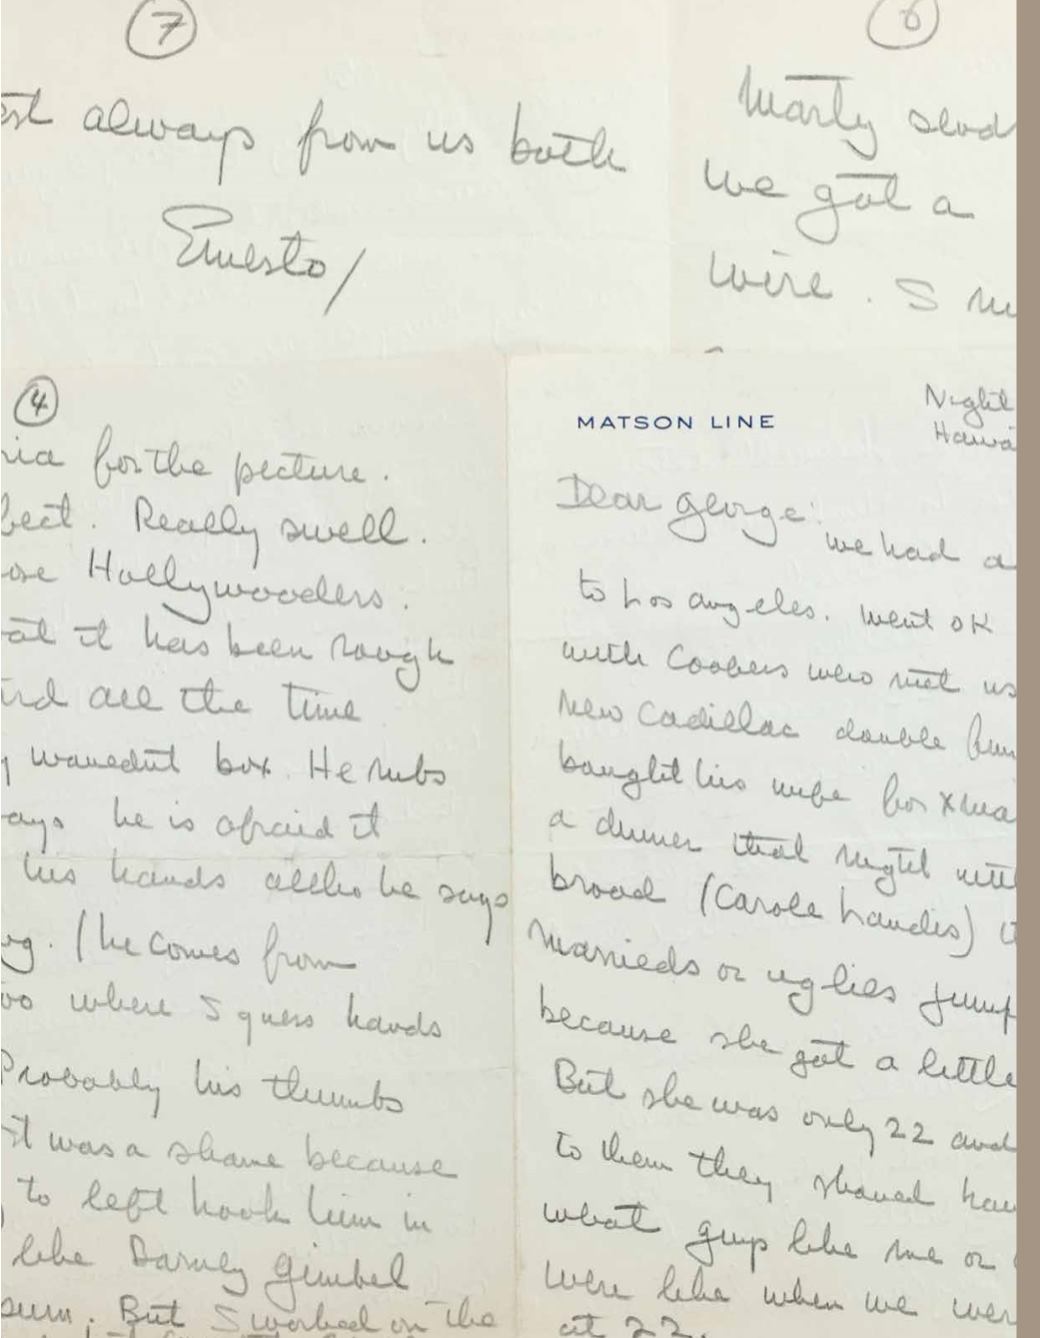 7
est always from us both
Ernesto/
6
Marty send
we got a
wire. I
4
for the picture.
fect. Really swell.
Hollywooders.
at it has been rough
all the time
box. He rubs
ays he is afraid it
his hands altho he says
(he comes from
where I guess hands
Probably his thumbs
it was a shame because
to left hook him in
like Barney Gimbel
But I worked on the
MATSON LINE
Night
Hawa
Dear George:
we had a
to Los Angeles. Went OK
with Coopers who met us
New Cadillac double
bought his wife for Xma
a dinner that night with
broad (Carole Landis)
Marrieds or uglies jump
because she got a little
But she was only 22 and
to them they should hav
what guys like me or
were like when we wer
at 22.